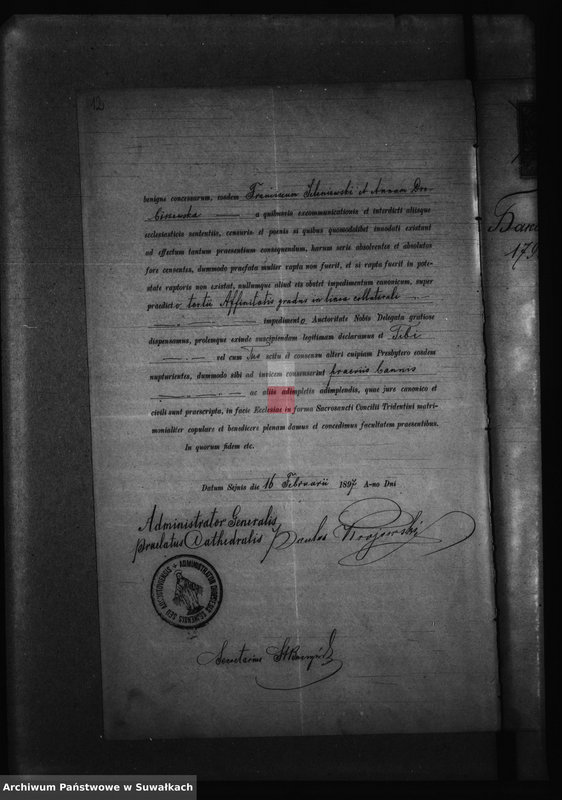 12
benigne concessarum, eosdem Franciscum Szleniewski et Annam Dro-
biszewska a quibusvis excommunicationis et interdicti aliisque
ecclesiasticis sententiis, censuris et poenis si quibus quomodolibet innodati existant
ad effectum tantum praesentium consequendum, harum serie absolventes et absolutos
fore censentes, dummodo praefata mulier rapta non fuerit, et si rapta fuerit in pote-
state raptoris non existat, nullumque aliud eis obstet impedimentum canonicum, super
praedicto tertii Affinitatis gradus in linea collaterali
impedimento Auctoritate Nobis Delegata gratiose
dispensamus, prolemque exinde suscipiendam legitimam declaramus et Tibi
vel cum Tuo scitu et consensu alteri cuipiam Presbytero eosdem
nupturientes, dummodo sibi ad invicem consenserint praeviis bannis
ac aliis adimpletis adimplendis, quae jure canonico et
civili sunt praescripta, in facie Ecclesiae in forma Sacrosancti Concilii Tridentini matri-
monialiter copulare et benedicere plenam damus et concedimus facultatem praesentibus.
In quorum fidem etc.
Datum Sejnis die 16 Februarii 1897 A-no Dni
Administrator Generalis
Praelatus Cathedralis Paulus Krajewski
Secretarius
Бан
179
Archiwum Państwowe w Suwałkach